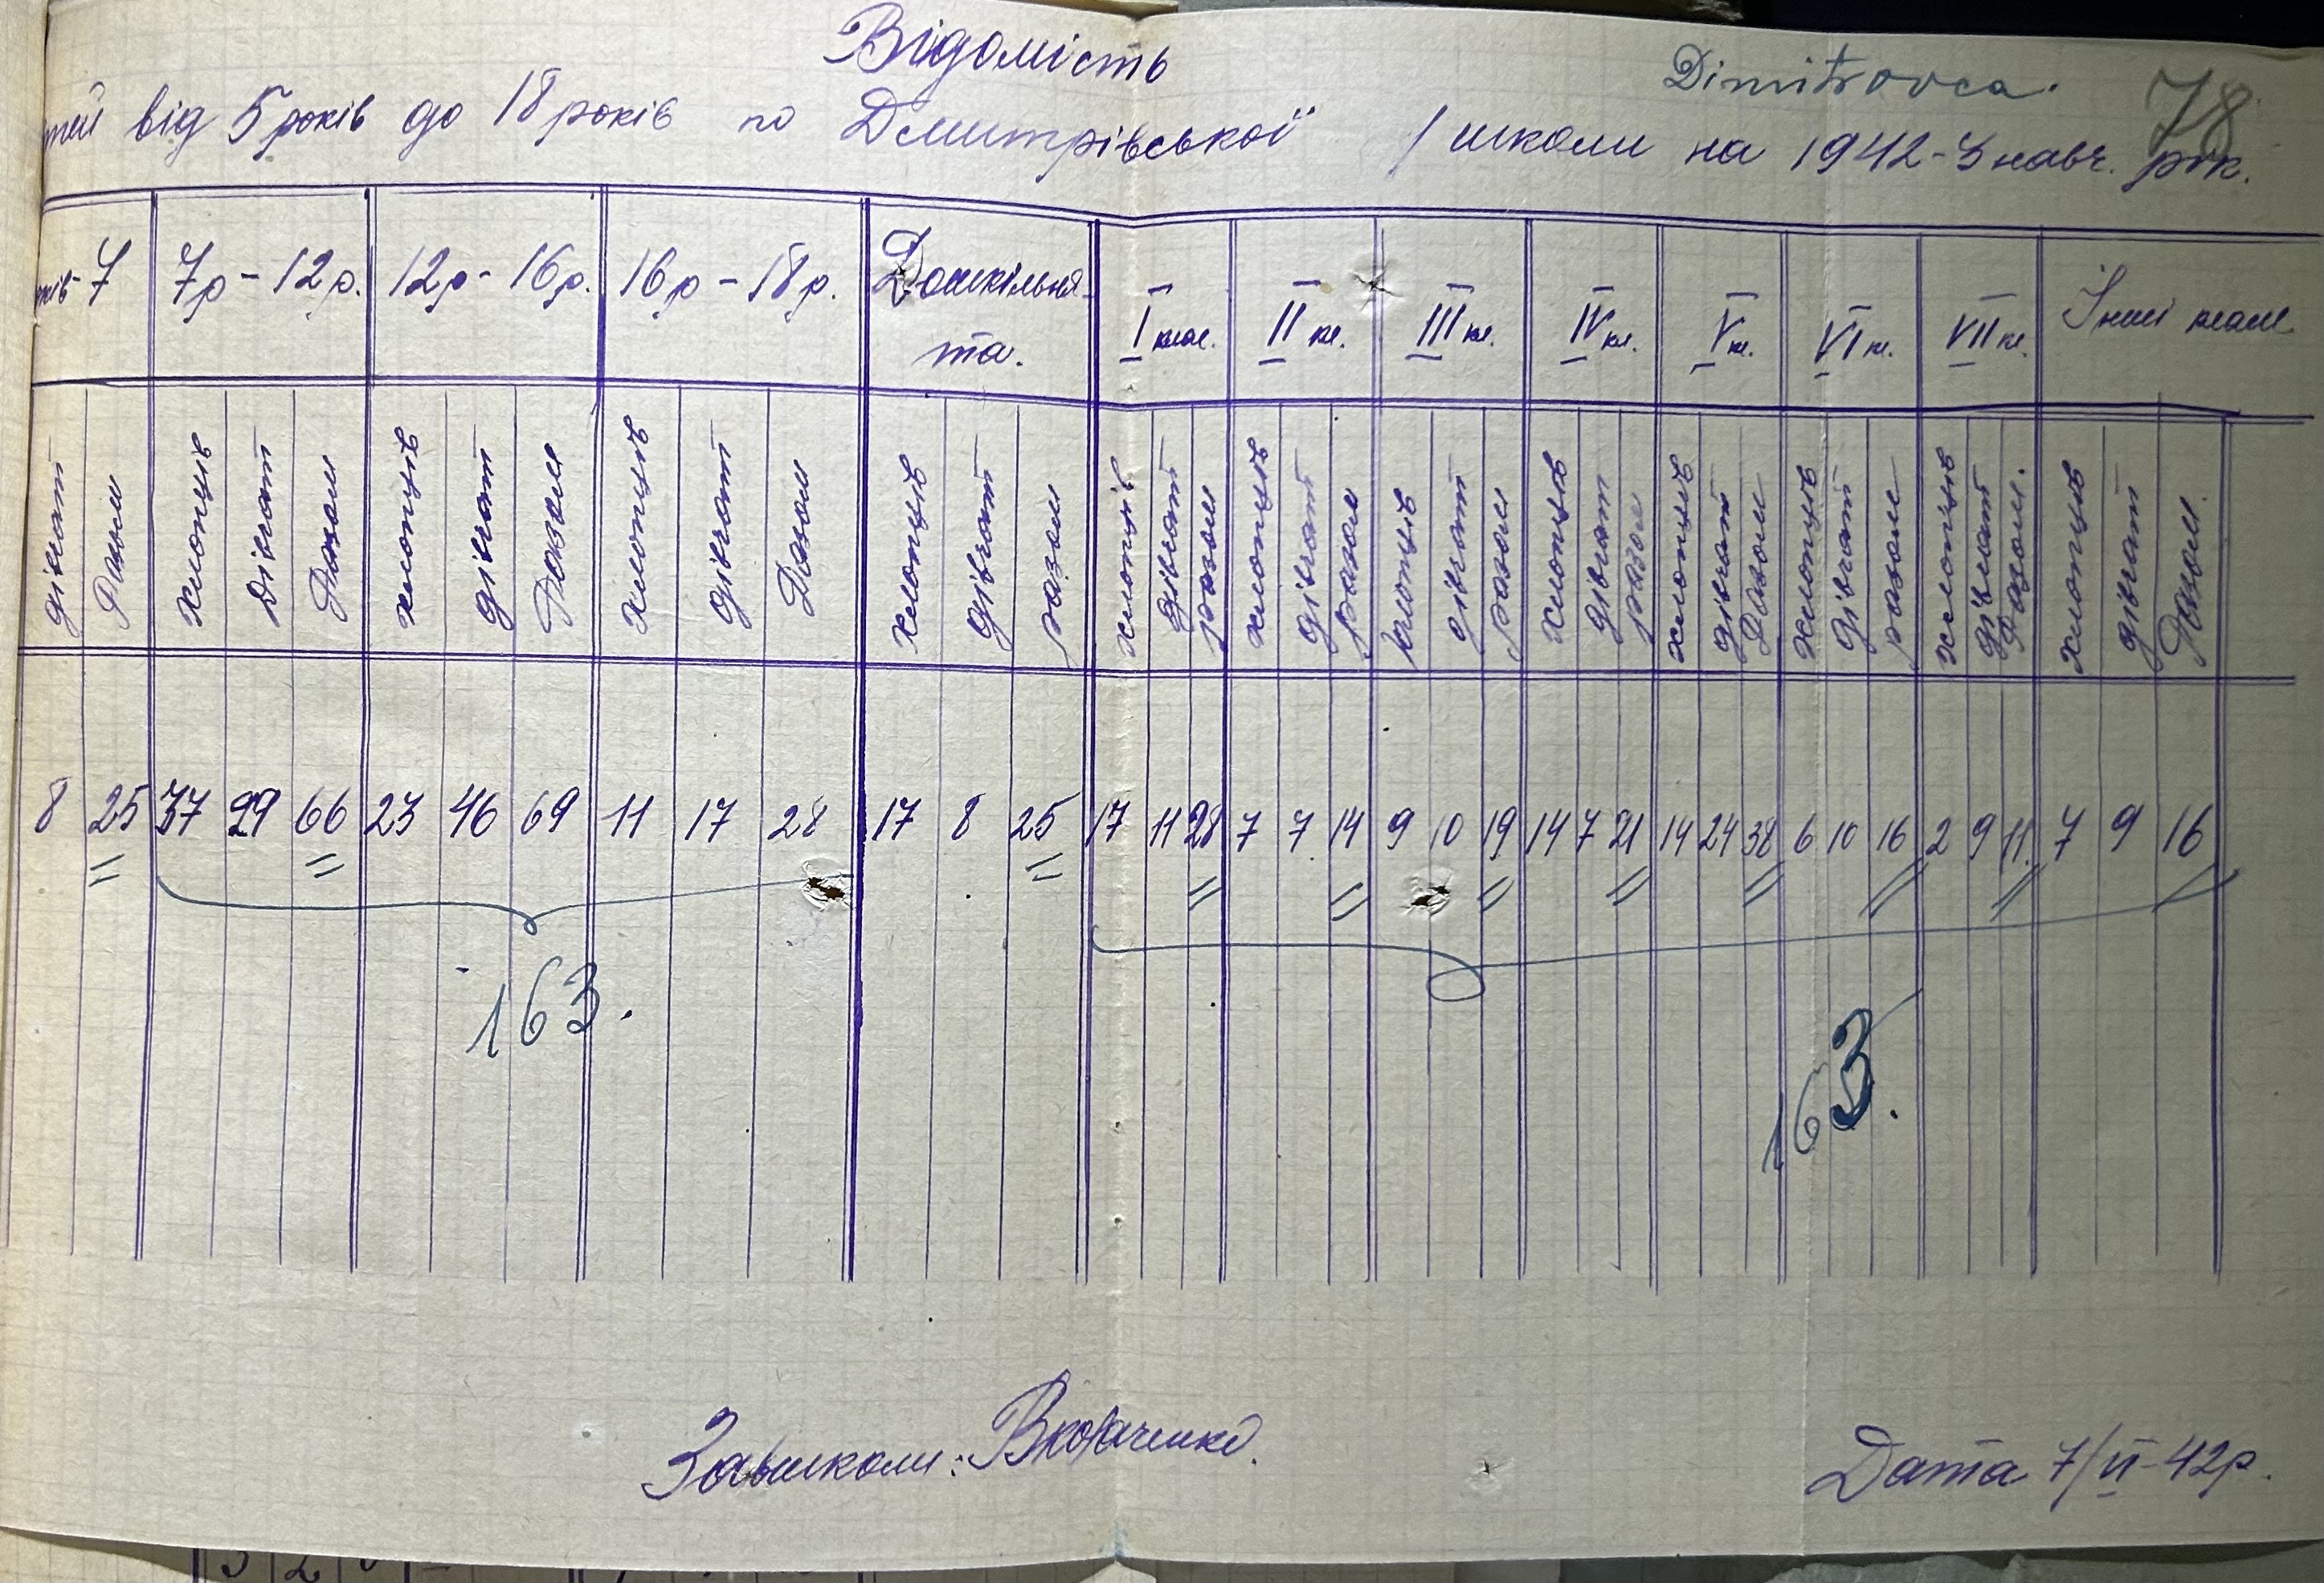 Відомість
Dimitrovca.
78
тей від 5 років до 18 років по Дмитрівської / школи на 1942-3 навч. рік.
років- 7 7р - 12р. 12р - 16р. 16р - 18р. Дошкільня- I клас. II кл. III кл. IV кл. V кл. VI кл. VII кл. Інші клас
та.
дівчат Разом хлопців дівчат Разом хлопців дівчат Разом хлопців дівчат Разом хлопців дівчат разом хлопців дівчат разом хлопців дівчат разом хлопців дівчат разом хлопців дівчат разом хлопців дівчат Разом хлопців дівчат разом хлопців дівчат Разом. хлопців дівчат Разом.
8 25 37 29 66 23 46 69 11 17 28 17 8 25 17 11 28 7 7 14 9 10 19 14 7 21 14 24 38 6 10 16 2 9 11 7 9 16
163.
163.
Завшколи:
Дата 7/VI-42р.
3 2